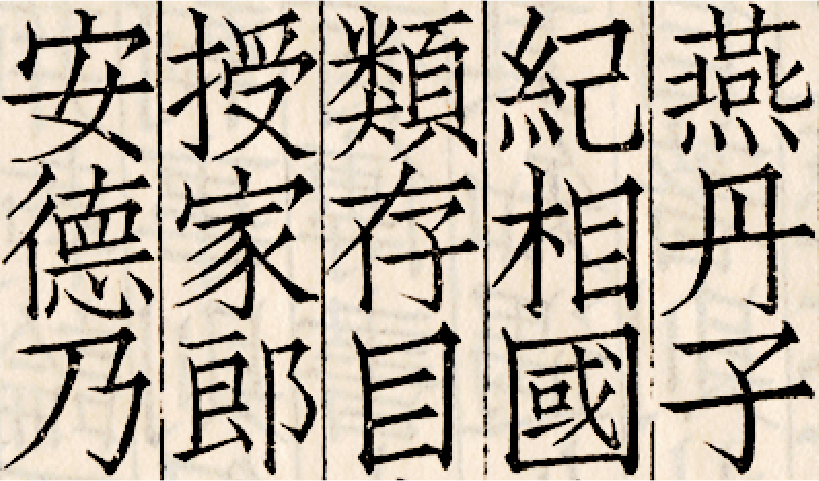 燕丹子
紀相國
類存目
授家郎
安德乃